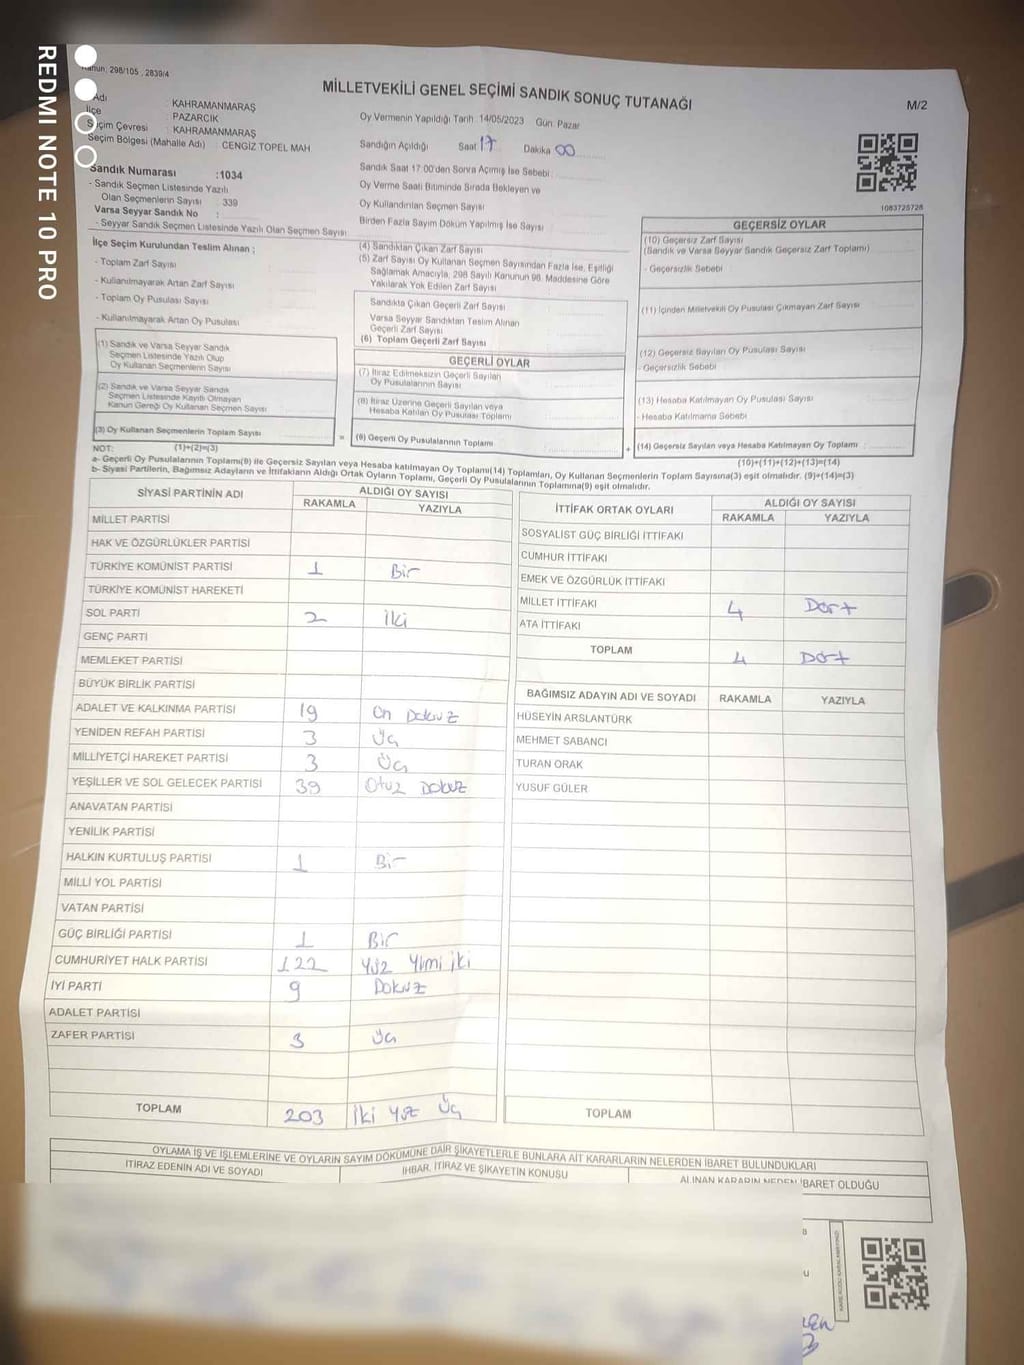 REDMI NOTE 10 PRO
Kanun: 298/105 , 2839/4
MİLLETVEKİLİ GENEL SEÇİMİ SANDIK SONUÇ TUTANAĞI
M/2
Adı : KAHRAMANMARAŞ
İlçe : PAZARCIK
Seçim Çevresi : KAHRAMANMARAŞ
Seçim Bölgesi (Mahalle Adı) : CENGİZ TOPEL MAH
Sandık Numarası :1034
- Sandık Seçmen Listesinde Yazılı
Olan Seçmenlerin Sayısı : 339
Varsa Seyyar Sandık No :
- Seyyar Sandık Seçmen Listesinde Yazılı Olan Seçmen Sayısı:
Oy Vermenin Yapıldığı Tarih: 14/05/2023 Gün: Pazar
Sandığın Açıldığı Saat 17 Dakika 00
Sandık Saat 17.00'den Sonra Açımış İse Sebebi:
Oy Verme Saati Bitiminde Sırada Bekleyen ve
Oy Kullandırılan Seçmen Sayısı
Birden Fazla Sayım Döküm Yapılmış İse Sayısı
1083725728
İlçe Seçim Kurulundan Teslim Alınan :
- Toplam Zarf Sayısı
- Kullanılmayarak Artan Zarf Sayısı
- Toplam Oy Pusulası Sayısı
- Kullanılmayarak Artan Oy Pusulası
(1) Sandık ve Varsa Seyyar Sandık
Seçmen Listesinde Yazılı Olup
Oy Kullanan Seçmenlerin Sayısı
(2) Sandık ve Varsa Seyyar Sandık
Seçmen Listesinde Kayıtlı Olmayan
Kanun Gereği Oy Kullanan Seçmen Sayısı
(3) Oy Kullanan Seçmenlerin Toplam Sayısı
(4) Sandıktan Çıkan Zarf Sayısı
(5) Zarf Sayısı Oy Kullanan Seçmen Sayısından Fazla İse, Eşitliği
Sağlamak Amacıyla, 298 Sayılı Kanunun 98. Maddesine Göre
Yakılarak Yok Edilen Zarf Sayısı
Sandıkta Çıkan Geçerli Zarf Sayısı
Varsa Seyyar Sandıktan Teslim Alınan
Geçerli Zarf Sayısı
(6) Toplam Geçerli Zarf Sayısı
GEÇERLİ OYLAR
(7) İtiraz Edilmeksizin Geçerli Sayılan
Oy Pusulalarının Sayısı
(8) İtiraz Üzerine Geçerli Sayılan veya
Hesaba Katılan Oy Pusulası Toplamı
= (9) Geçerli Oy Pusulalarının Toplamı
GEÇERSİZ OYLAR
(10) Geçersiz Zarf Sayısı
(Sandık ve Varsa Seyyar Sandık Geçersiz Zarf Toplamı)
- Geçersizlik Sebebi
(11) İçinden Milletvekili Oy Pusulası Çıkmayan Zarf Sayısı
(12) Geçersiz Sayılan Oy Pusulası Sayısı
- Geçersizlik Sebebi
(13) Hesaba Katılmayan Oy Pusulası Sayısı
- Hesaba Katılmama Sebebi
+ (14) Geçersiz Sayılan veya Hesaba Katılmayan Oy Toplamı
NOT: (1)+(2)=(3)
(10)+(11)+(12)+(13)=(14)
a- Geçerli Oy Pusulalarının Toplamı(9) ile Geçersiz Sayılan veya Hesaba katılmayan Oy Toplamı(14) Toplamları, Oy Kullanan Seçmenlerin Toplam Sayısına(3) eşit olmalıdır. (9)+(14)=(3)
b- Siyasi Partilerin, Bağımsız Adayların ve İttifakların Aldığı Ortak Oyların Toplamı, Geçerli Oy Pusulalarının Toplamına(9) eşit olmalıdır.
SİYASİ PARTİNİN ADI ALDIĞI OY SAYISI
RAKAMLA YAZIYLA
MİLLET PARTİSİ
HAK VE ÖZGÜRLÜKLER PARTİSİ
TÜRKİYE KOMÜNİST PARTİSİ 1 Bir
TÜRKİYE KOMÜNİST HAREKETİ
SOL PARTİ 2 iki
GENÇ PARTİ
MEMLEKET PARTİSİ
BÜYÜK BİRLİK PARTİSİ
ADALET VE KALKINMA PARTİSİ 19 On Dokuz
YENİDEN REFAH PARTİSİ 3 Üç
MİLLİYETÇİ HAREKET PARTİSİ 3 Üç
YEŞİLLER VE SOL GELECEK PARTİSİ 39 Otuz Dokuz
ANAVATAN PARTİSİ
YENİLİK PARTİSİ
HALKIN KURTULUŞ PARTİSİ 1 Bir
MİLLİ YOL PARTİSİ
VATAN PARTİSİ
GÜÇ BİRLİĞİ PARTİSİ 1 Bir
CUMHURİYET HALK PARTİSİ 122 Yüz Yirmi iki
İYİ PARTİ 9 Dokuz
ADALET PARTİSİ
ZAFER PARTİSİ 3 Üç
TOPLAM 203 İki Yüz Üç
İTTİFAK ORTAK OYLARI ALDIĞI OY SAYISI
RAKAMLA YAZIYLA
SOSYALIST GÜÇ BİRLİĞİ İTTİFAKI
CUMHUR İTTİFAKI
EMEK VE ÖZGÜRLÜK İTTİFAKI
MİLLET İTTİFAKI 4 Dört
ATA İTTİFAKI
TOPLAM 4 Dört
BAĞIMSIZ ADAYIN ADI VE SOYADI RAKAMLA YAZIYLA
HÜSEYİN ARSLANTÜRK
MEHMET SABANCI
TURAN ORAK
YUSUF GÜLER
TOPLAM
OYLAMA İŞ VE İŞLEMLERİNE VE OYLARIN SAYIM DÖKÜMÜNE DAİR ŞİKAYETLERLE BUNLARA AİT KARARLARIN NELERDEN İBARET BULUNDUKLARI
İTİRAZ EDENİN ADI VE SOYADI İHBAR, İTİRAZ VE ŞİKAYETİN KONUSU ALINAN KARARIN NEDEN İBARET OLDUĞU